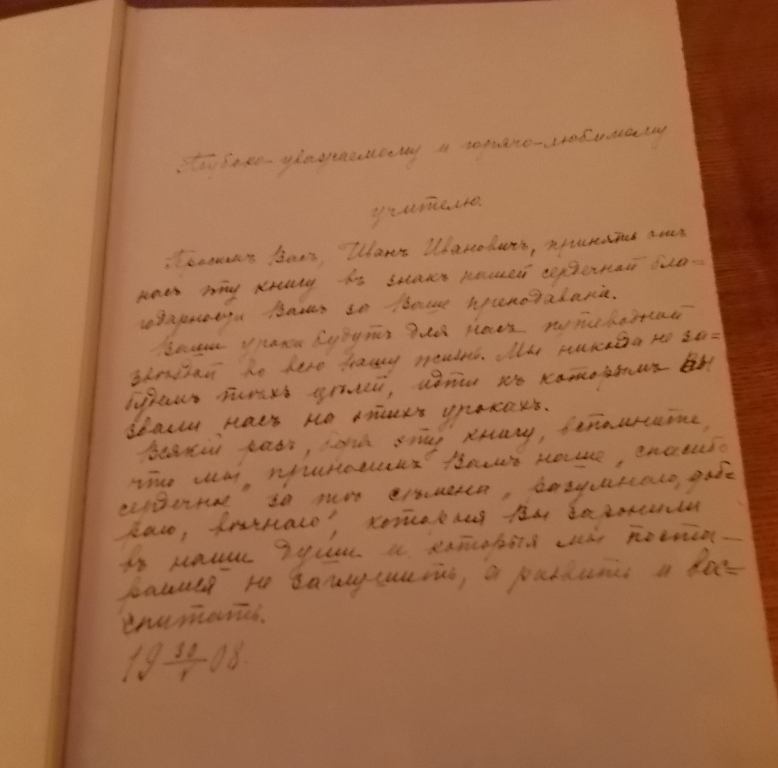 Глубоко-уважаемому и горячо-любимому
учителю.
Просимъ Васъ, Иванъ Ивановичъ, принять отъ
насъ эту книгу въ знак нашей сердечной бла=
годарности Вамъ за Ваше преподаванiе.
Ваши уроки будутъ для насъ путеводной
звѣздой во всю нашу жизнь. Мы никогда не за=
будемъ тѣхъ цѣлей, идти къ которымъ Вы
звали насъ на этихъ урокахъ.
Всякiй разъ, беря эту книгу, вспомните,
что мы, приносимъ Вамъ наше „спасибо
сердечное" за тѣ сѣмена „разумнаго, доб=
раго, вѣчнаго", которыя Вы заронили
въ наши души и которыя мы поста-
раемся не заглушить, а развить и вос=
питать.
19 30/V 08.